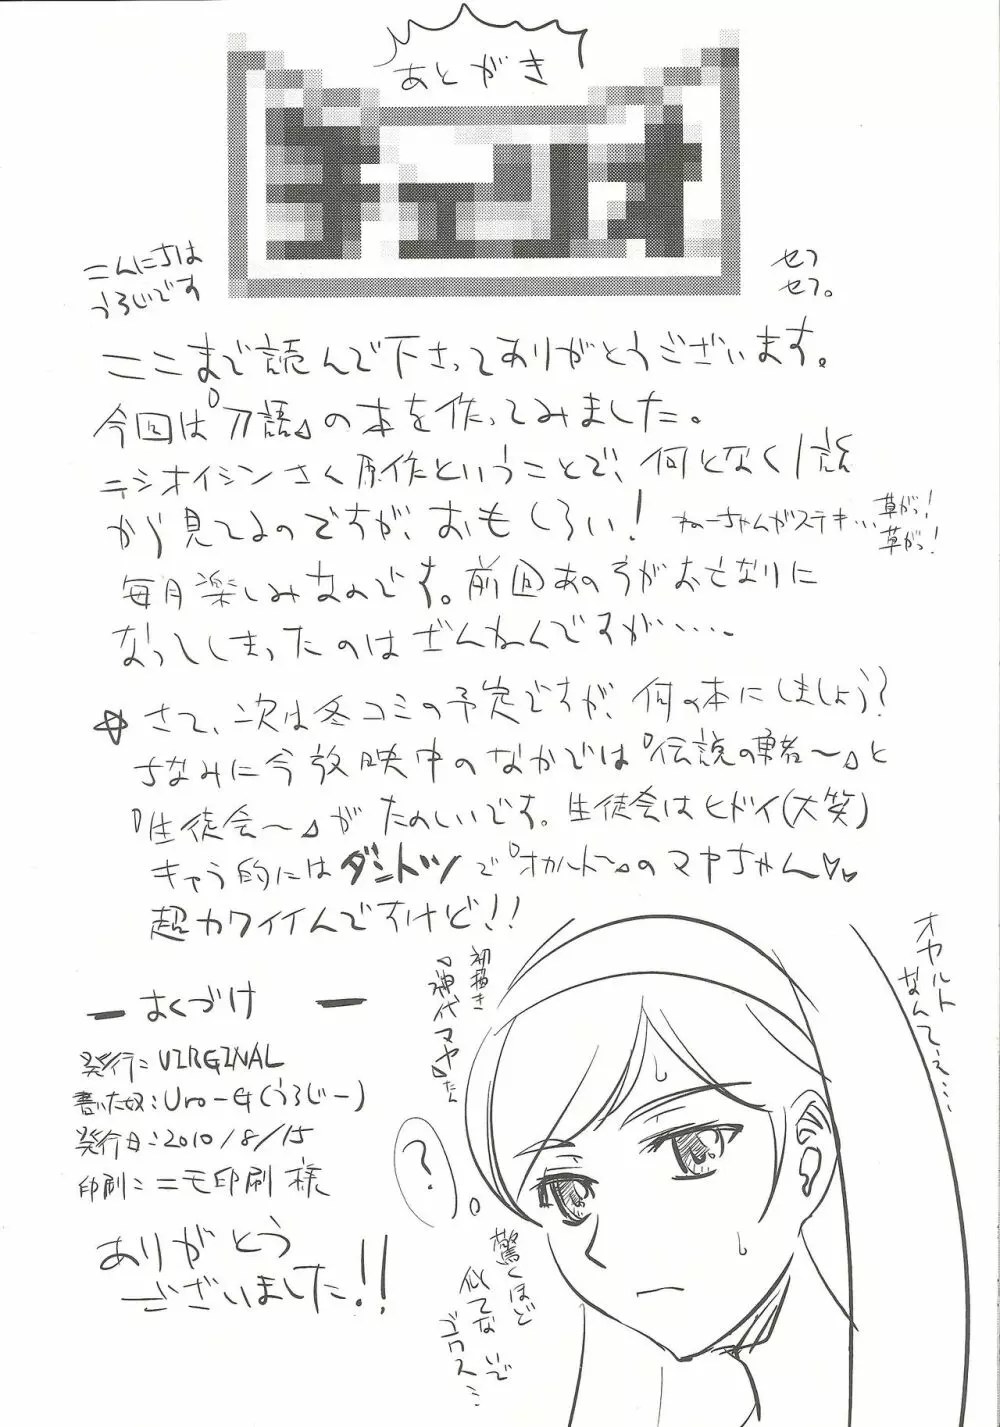 あとがき
チェリオ
こんにちは
うろじです
セフ
セフ。
ここまで読んで下さってありがとうございます。
今回は『刀語』の本を作ってみました。
ニシオイシンさん原作ということで、何となく1話
から見てるのですが、おもしろい!
ねーちゃんがステキ…
草がっ!
草がっ!
毎月楽しみなのです。前回あの子がおとなりに
なってしまったのはざんねんですが・・・・。
☆さて、次は冬コミの予定ですが、何の本にしましょう?
ちなみに今放映中のなかでは『伝説の勇者〜』と
『生徒会〜』がたのしいです。生徒会はヒドイ(大笑)
キャラ的にはダントツで『オカルト〜』のマヤちゃん♡♥
超カワイイんですけど!!
オカルト
なんてぇ…
初描き
『神代マヤ』たん
?
驚くほど
似てない
ゴワス…
ー おくづけ ー
発行:VIRGINAL
書いた奴:Uro-G(うろじー)
発行日:2010/8/15
印刷:ニモ印刷 様
ありがとう
ございました!!